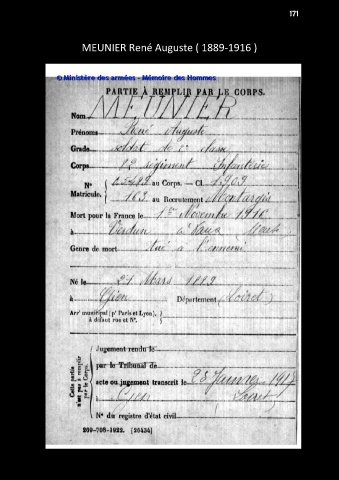 171
MEUNIER René Auguste ( 1889-1916 )
© Ministère des armées - Mémoire des Hommes
PARTIE À REMPLIR PAR LE CORPS.
Nom MEUNIER
Prénoms René Auguste
Grade soldat de 2e classe
Corps régiment Infanterie
N° au Corps. — Cl. 1909
Matricule. 163 au Recrutement Montargis
Mort pour la France le 1er Novembre 1916
à Verdun Vaux Meuse
Genre de mort tué à l'ennemi
Né le 21 Mars 1889
à Gien Département Loiret
Arrt municipal (pr Paris et Lyon),
à défaut rue et N°.
Cette partie n'est pas à remplir par le Corps.
Jugement rendu le
par le Tribunal de
acte ou jugement transcrit le 28 Janvier 1917
à Gien Loiret
N° du registre d'état civil
269-708-1922. [26434]